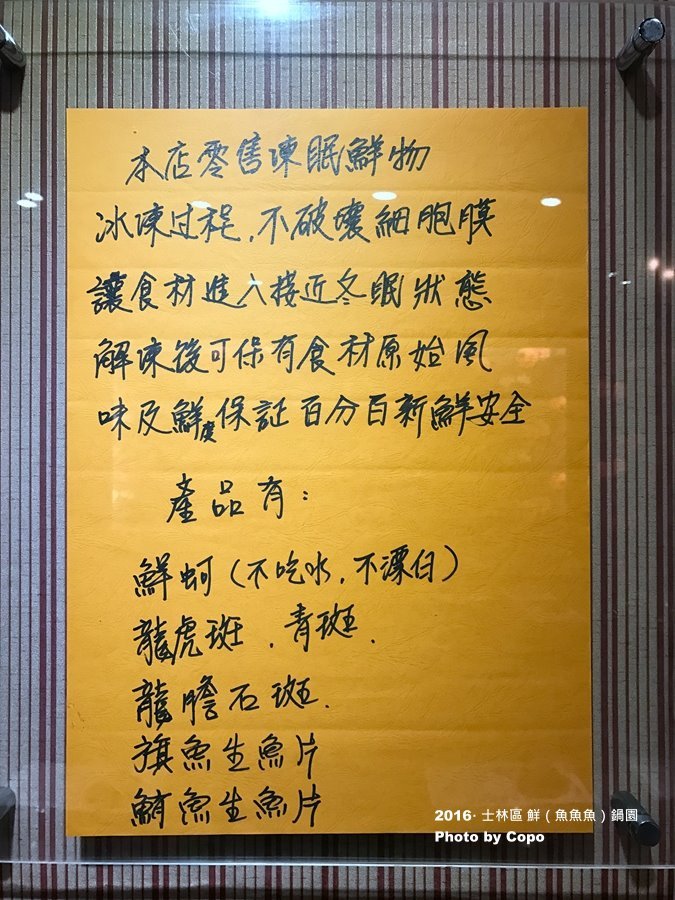 本店零售凍眠鮮物
冰凍过程,不破壞細胞膜
讓食材進入接近冬眠狀態
解凍後可保有食材原始風
味及鮮度保証百分百新鮮安全
產品有:
鮮蚵(不吃水,不漂白)
龍虎斑.青斑.
龍膽石斑.
旗魚生魚片
鮪魚生魚片
2016· 士林區 鮮(魚魚魚)鍋園
Photo by Copo